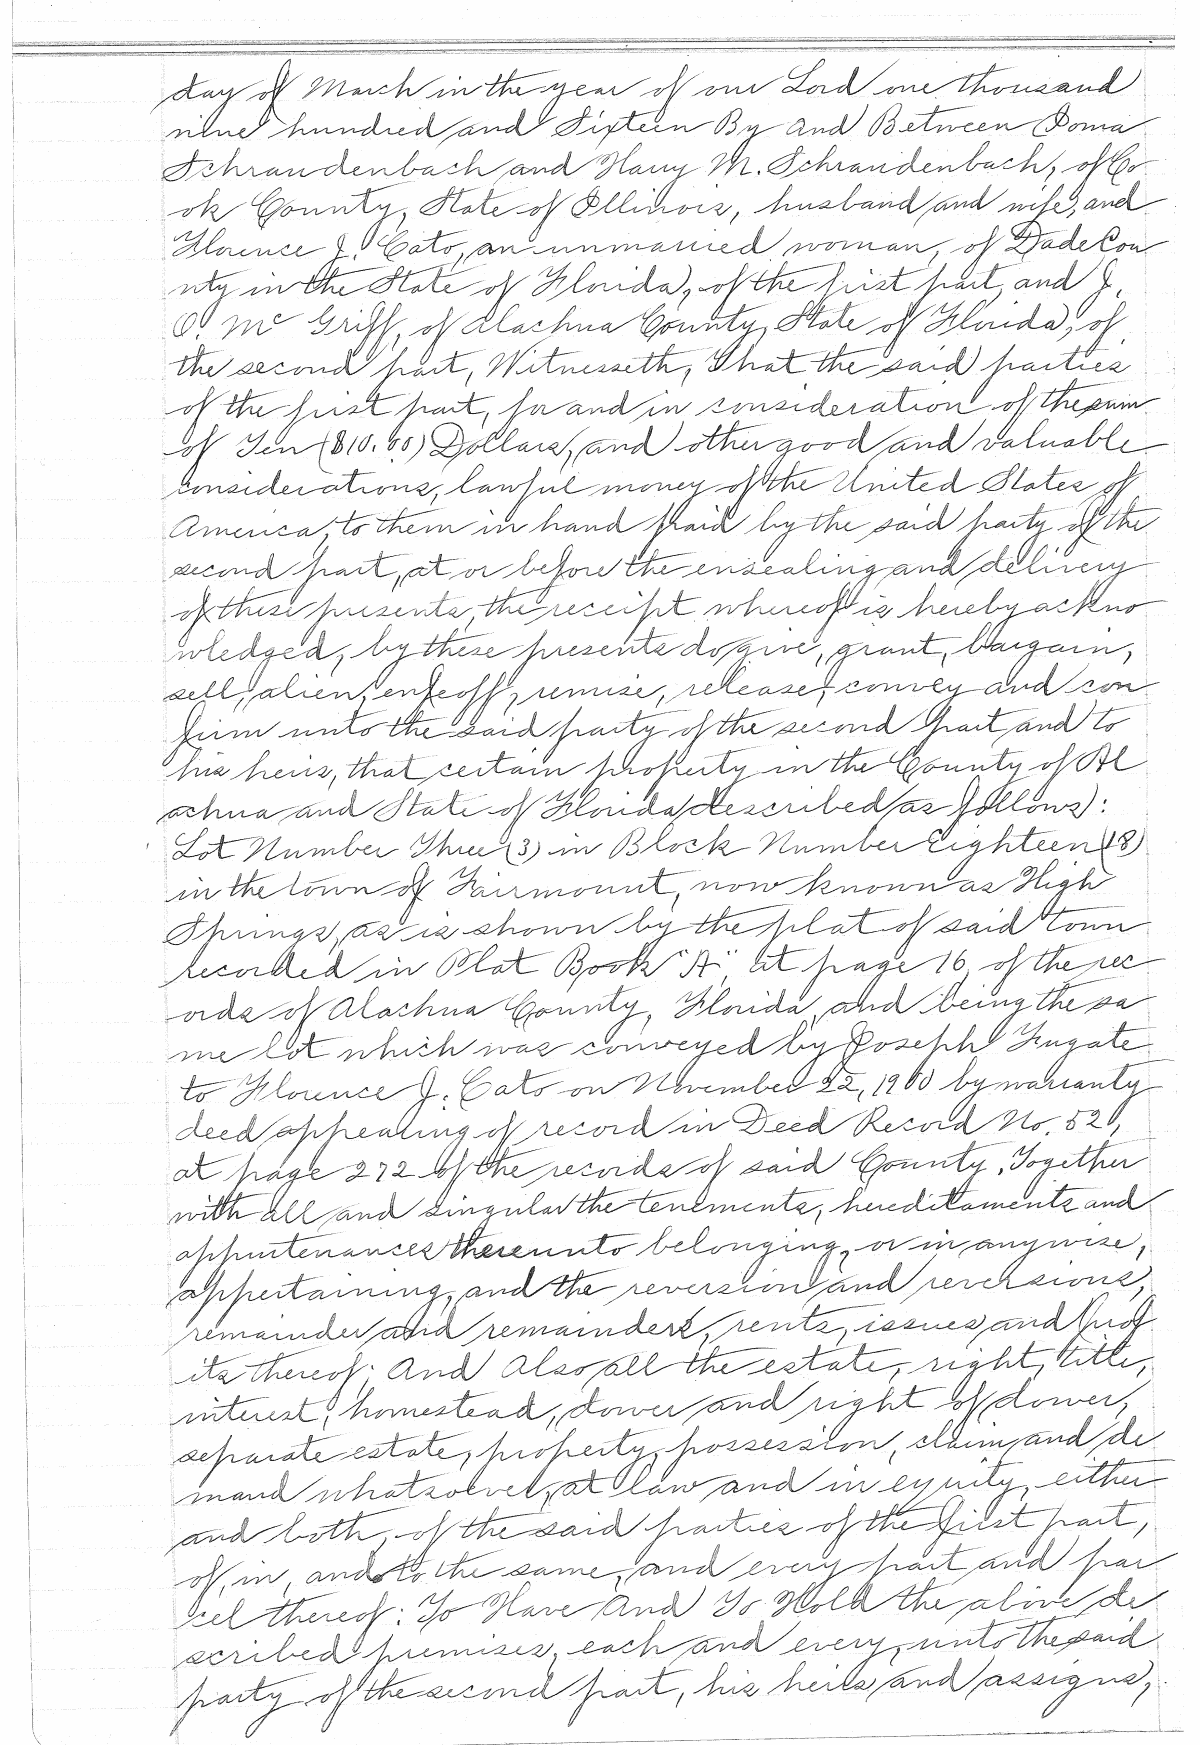 day of March in the year of our Lord one thousand
nine hundred and Sixteen By and Between Roma
Schraudenbach and Harry M. Schraudenbach, of Co
ok County, State of Illinois, husband and wife, and
Florence J. Cato, an unmarried woman, of Dade Cou
nty in the State of Florida, of the first part, and J.
O. Mc Griff, of Alachua County, State of Florida, of
the second part, Witnesseth, That the said parties
of the first part, for and in consideration of the sum
of Ten ($10.00) Dollars, and other good and valuable
considerations, lawful money of the United States of
America, to them in hand paid by the said party of the
second part, at or before the ensealing and delivery
of these presents, the receipt whereof is hereby ackno
wledged, by these presents do give, grant, bargain,
sell, alien, enfeoff, remise, release, convey and con
firm unto the said party of the second part, and to
his heirs, that certain property in the County of Al
achua and State of Florida described as follows:
Lot Number Three (3) in Block Number Eighteen (18)
in the town of Fairmount, now known as High
Springs, as is shown by the plat of said town
recorded in Plat Book "A", at page 16, of the rec
ords of Alachua County, Florida, and being the sa
me lot which was conveyed by Joseph Fugate
to Florence J. Cato on November 22, 1900 by warranty
deed appearing of record in Deed Record No. 52,
at page 272 of the records of said County, Together
with all and singular the tenements, hereditaments and
appurtenances thereunto belonging, or in anywise,
appertaining, and the reversion and reversions,
remainder and remainders, rents, issues and prof
its thereof; And Also all the estate, right, title,
interest, homestead, dower and right of dower,
separate estate, property, possession, claim and de
mand whatsoever, at law and in equity, either
and both, of the said parties of the first part,
of, in, and to the same, and every part and par
cel thereof: To Have And To Hold the above de
scribed premises, each and every, unto the said
party of the second part, his heirs and assigns,